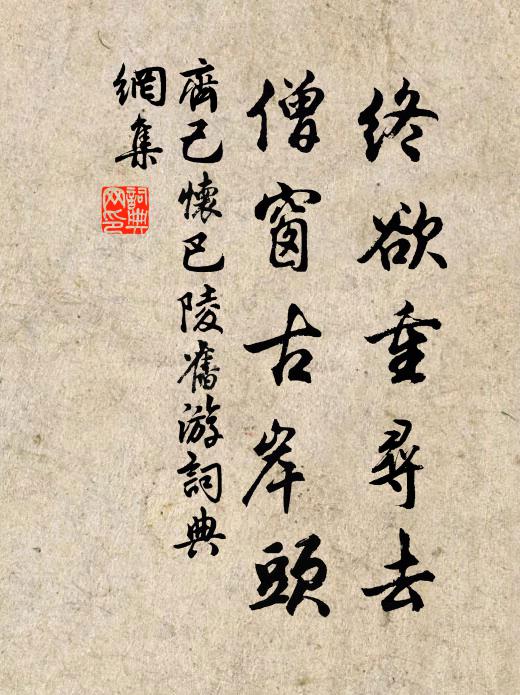 終欲重尋去
僧窗古岸頭
齊己懷巴陵舊游詞典
網集
詞典
网印